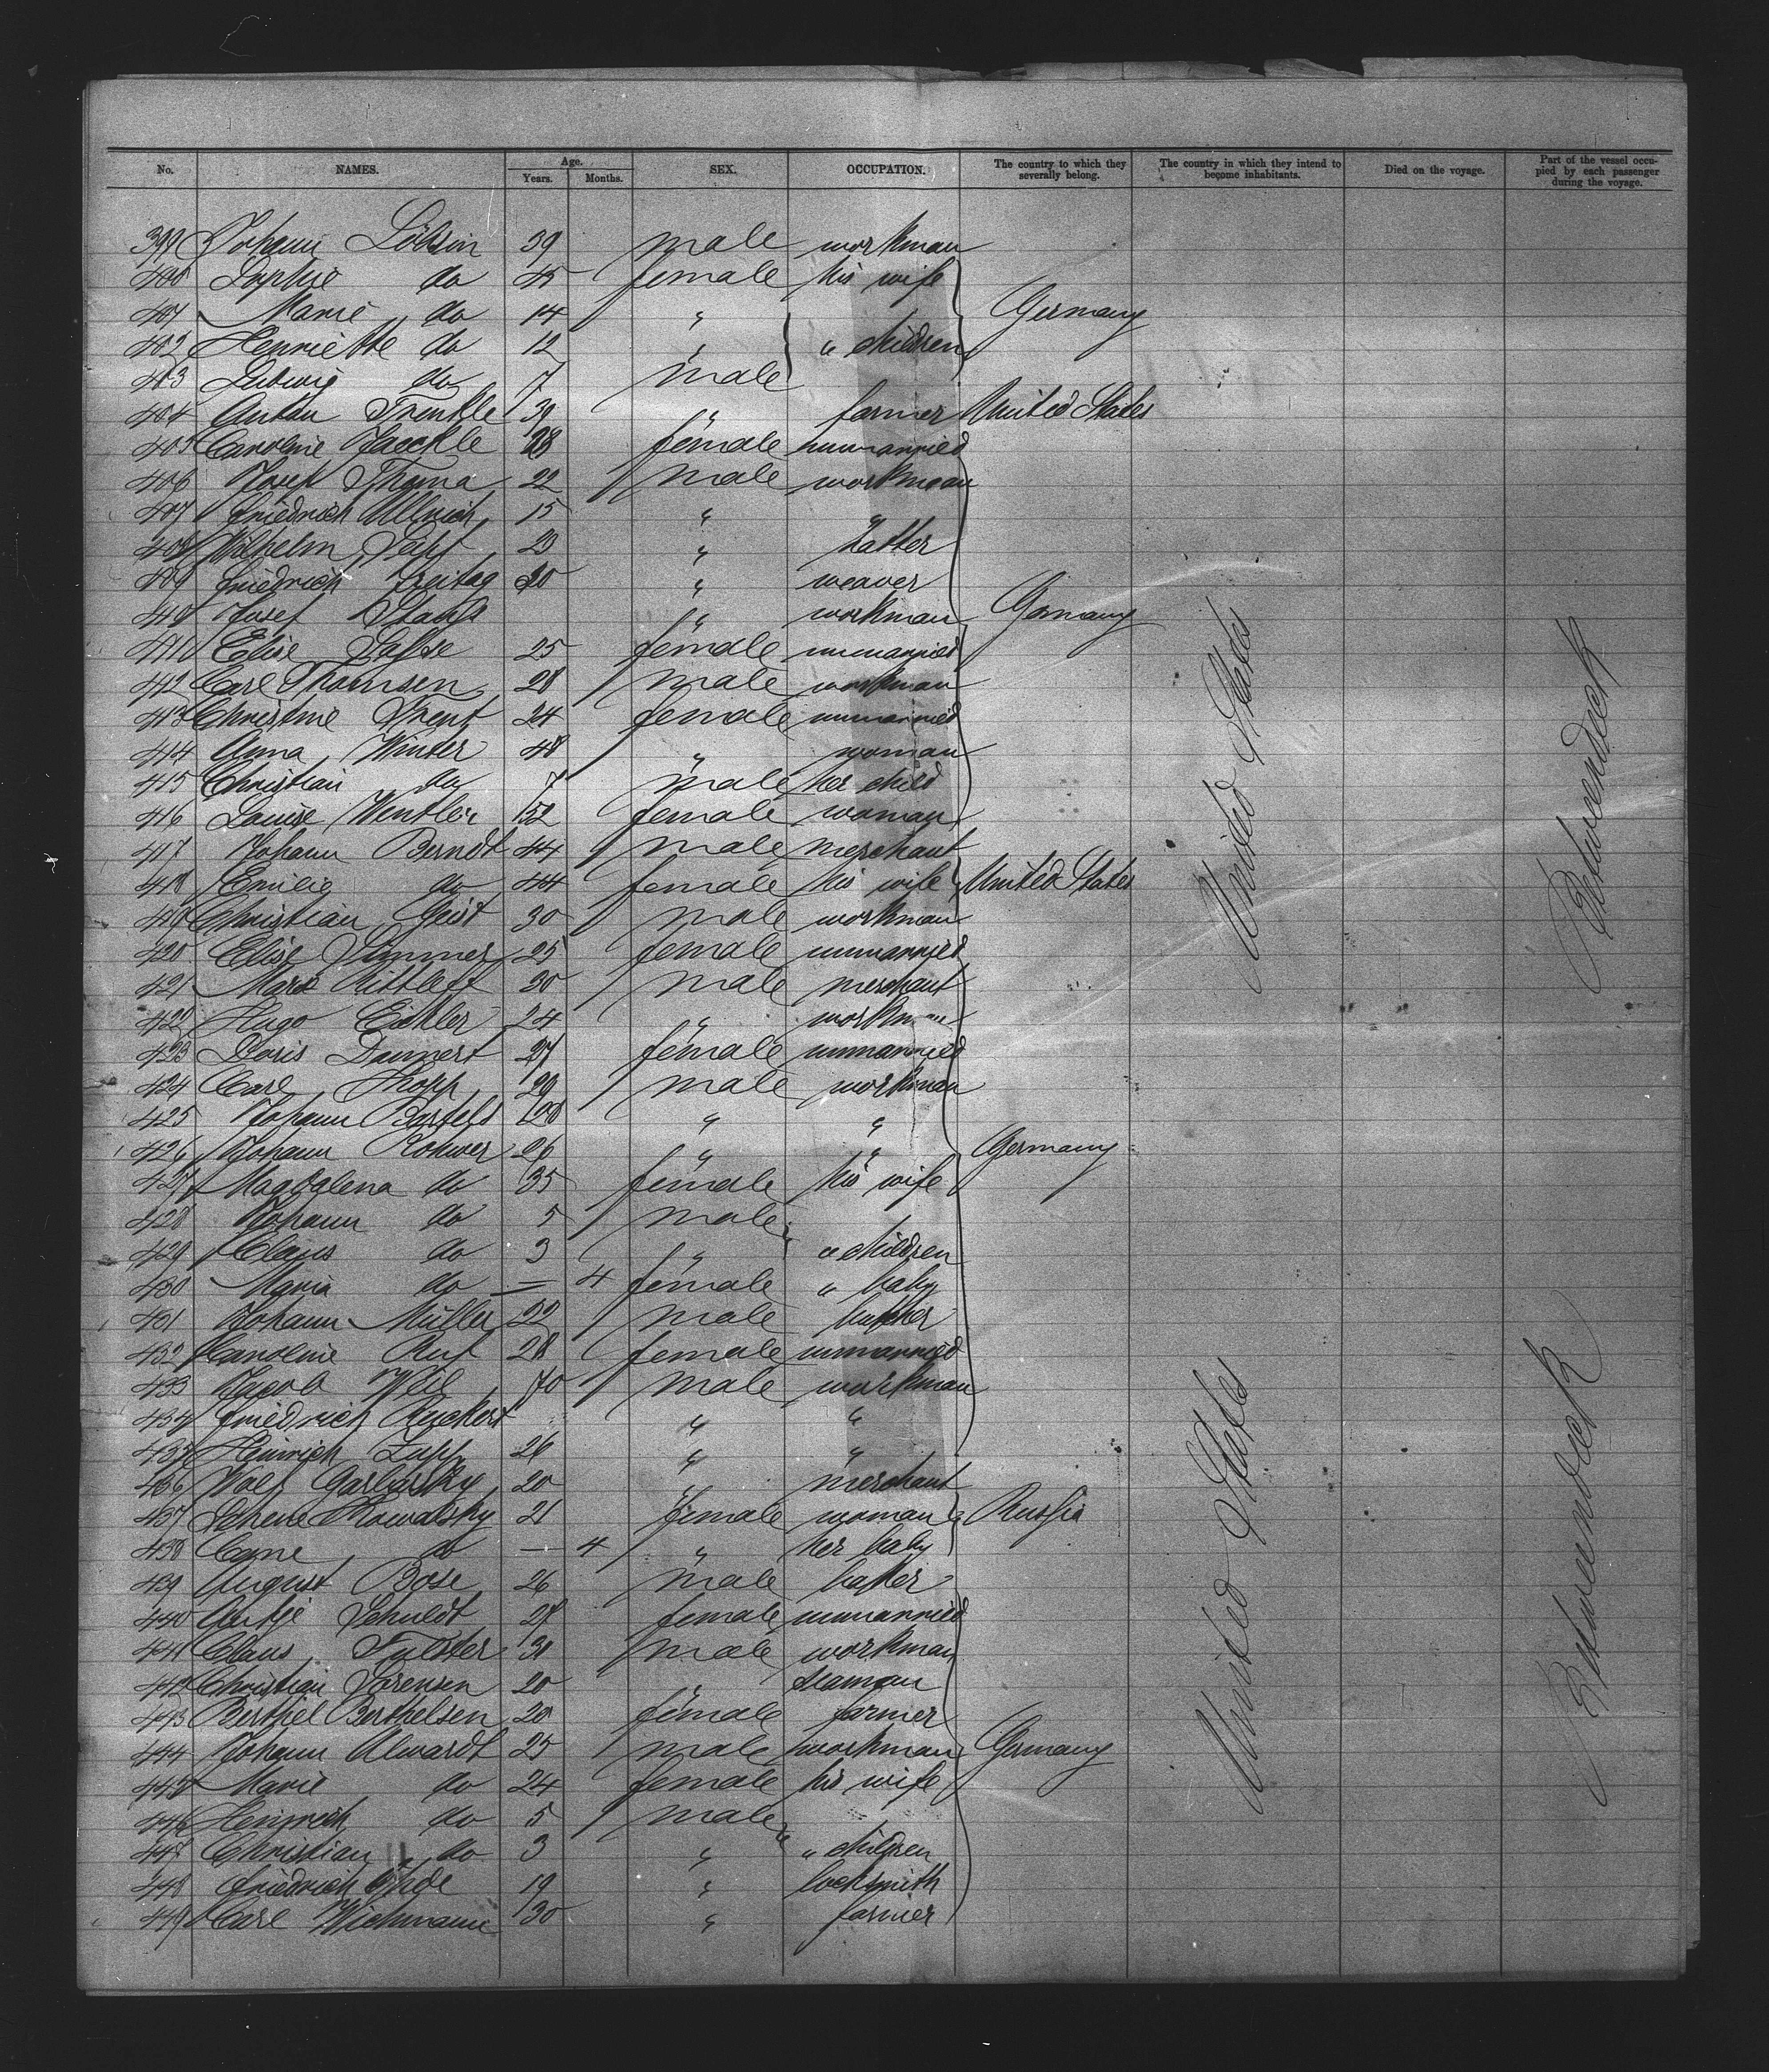 No. NAMES. Age. Years. Months. SEX. OCCUPATION. The country to which they severally belong. The country in which they intend to become inhabitants. Died on the voyage. Part of the vessel occupied by each passenger during the voyage.
399 Johann 39 male workman
400 Sophie do 45 female his wife
401 Marie do 14 " Germany
402 Henriette do 12 " " children
403 Ludwig do 7 male
404 Anton Trenkle 39 " farmer United States
405 Caroline Jaeckle 28 female unmarried
406 Josef Thoma 22 male workman
407 Friedrich Ullrich 15 " "
408 Wilhelm 29 " hatter
409 Friedrich Freitag 20 " weaver
410 Josef " workman Germany
411 Elise 25 female unmarried
412 Carl Thomsen 28 male workman
413 Christine 24 female unmarried
414 Anna Winter 48 " woman
415 Christian do 7 male her child
416 Louise 52 female woman
417 Johann Berndt 44 male merchant
418 Emilie do 44 female his wife United States
419 Christian Geist 30 male workman
420 Elise Simmer 25 female unmarried
421 Marx Rittleff 20 male merchant
422 Hugo Eichler 24 " workman
423 Doris 27 female unmarried
424 Carl 29 male workman
425 Johann Bartels 28 " "
426 Johann Rohwer 26 " " Germany
427 Magdalena do 35 female his wife
428 Johann do 5 male
429 Claus do 3 " " children
430 Maria do — 4 female " baby
431 Johann Müller 22 male butcher
432 Caroline Ruf 28 female unmarried
433 Jacob Weil 70 male workman
434 Friedrich Ruckert " "
435 Heinrich 26 " "
436 Wolf Garbarsky 20 " merchant
437 Schene Kowalsky 21 female woman Russia
438 do — 4 " her baby
439 August Bose 26 male baker
440 Antje Schuldt 27 female unmarried
441 Claus 30 male workman
442 Christian Sörensen 20 " seaman
443 Berthel Berthelsen 20 female farmer
444 Johann Alwardt 25 male workman Germany
445 Marie do 24 female his wife
446 Heinrich do 5 male
447 Christian do 3 " " children
448 Friedrich 19 " locksmith
449 Carl Wichmann 30 " farmer
United States
Betweendeck
United States
Betweendeck